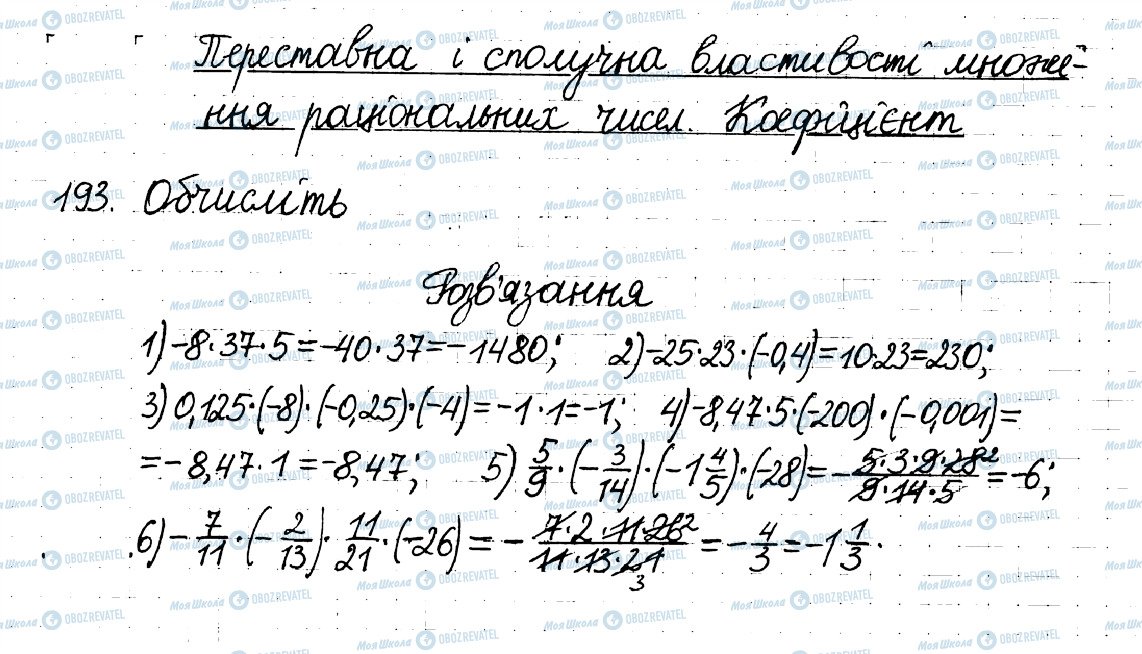 Переставна і сполучна властивості множе-
ння раціональних чисел. Коефіцієнт
193. Обчисліть
Розв'язання
1) -8·37·5=-40·37=-1480; 2) -25·23·(-0,4)=10·23=230;
3) 0,125·(-8)·(-0,25)·(-4)=-1·1=-1; 4) -8,47·5·(-200)·(-0,001)=
=-8,47·1=-8,47; 5) 5/9·(-3/14)·(-1 4/5)·(-28)=-5·3·9·28 2/9·14·5=-6;
6) -7/11·(-2/13)·11/21·(-26)=-7·2·11·26 2/11·13·21 3=-4/3=-1 1/3.
МояШкола OBOZREVATEL